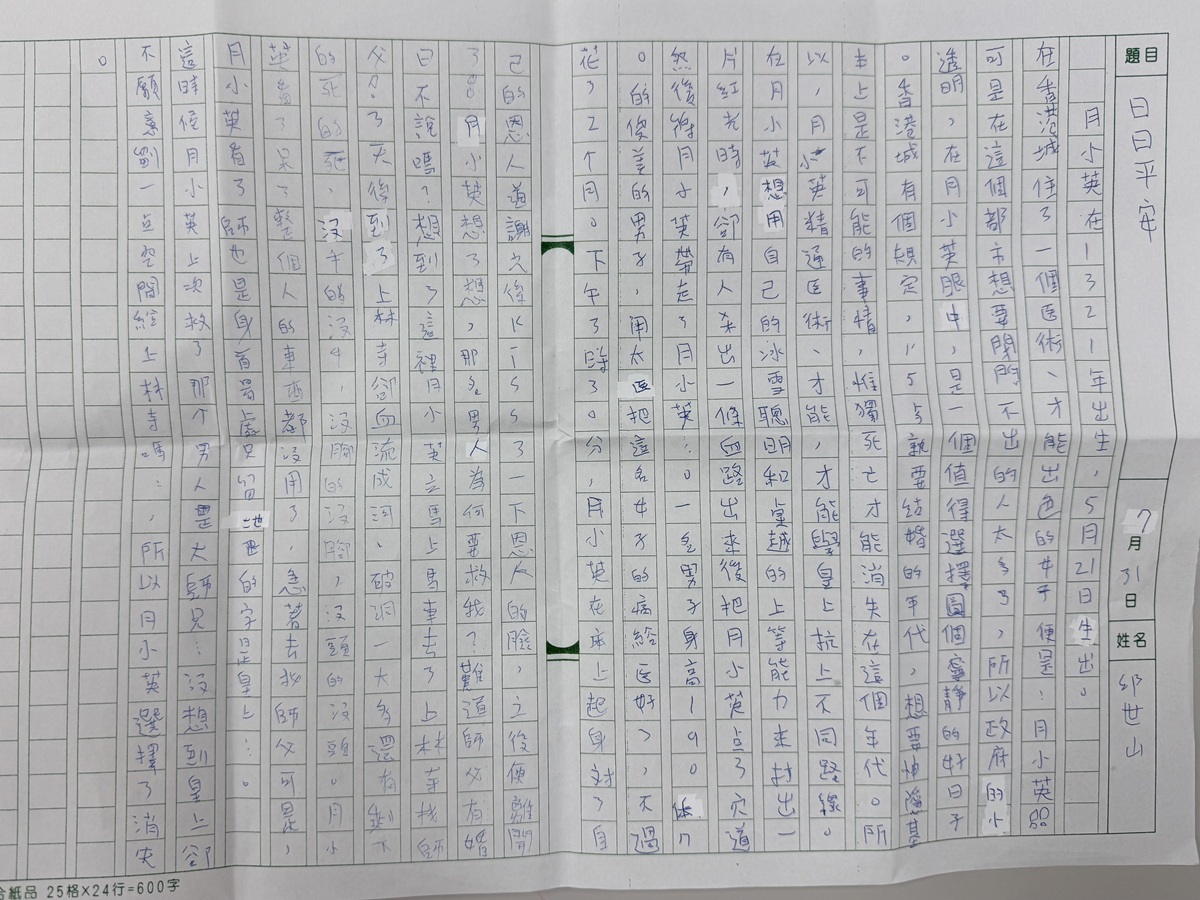 題目 日日平牢 7月31日 姓名 邱世山
月小英在1321年出生，5月21日生出。
在香港城住了一個医術、才能出色的女子便是：月小英
可是在這個都市想要開門、不出的人太多了，所以政府的小
透明，在月小英眼中，是一個值得選擇圓個，寧靜的好日子
。香港城有個規定，15歲就要結婚的年代，想要
主上是不可能的事情，惟獨死亡才能消失在這個年代。所
以，月小英精通医術、才能，才能與皇上抗上不同路線。
在月小英想用自己的冰雪聰明和卓越的上等能力來封出一
片紅光時，卻有人杀出一條血路出來後把月小英点了穴道
然後將月小英帶走了月小英。一名男子身高190体
。的傻差的男子，用太医把這名女子的病給医好了，不過
花了2个月。下午3時30分，月小英在床上起身対了自
己的恩人道謝之後 了一下恩人的臉，之後便離開
了。月小英想了想，那名男人為何要救我？難道師父有婚
曰不說嗎？想到了這裡月小英立馬上馬車去了上林寺找師
父。了天後到了上林寺卻血流成河、破洞一大多還有劍不
的死的死，沒手的沒4，沒胸的沒胸，沒頭的沒頭。月小
英看了呆了，整個人的東西都沒用了，急著去找師父可是，
月小英看了師也是身首異處只留地的字是皇上…。
這時候月小英上次救了那个男人是大師兄…沒想到皇上卻
不願意劉一点空間給上林寺嗎：，所以月小英選擇了消失
。
合紙品 25格×24行=600字